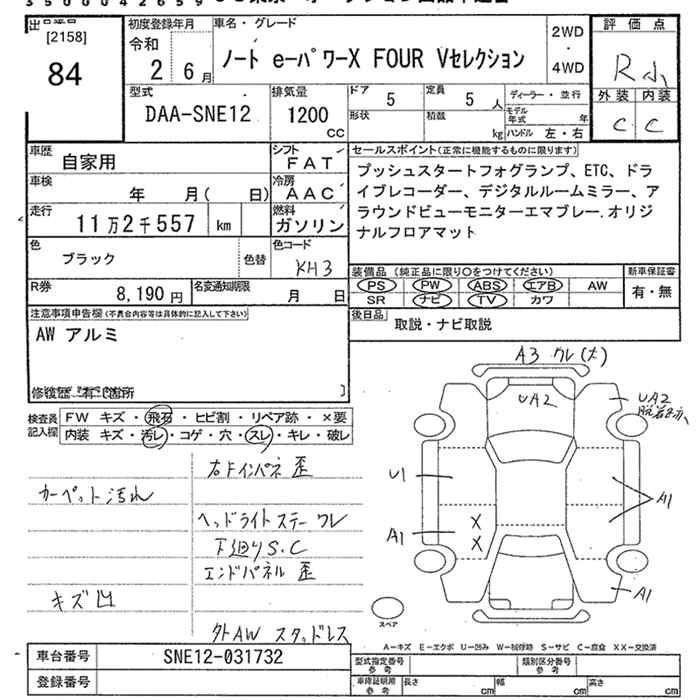 出品番号
[2158]
84
初度登録年月
令和
2 6月
車名・グレード
ノート e-パワーX FOUR Vセレクション
2WD
・
4WD
評価点
R小
外装 内装
C C
型式
DAA-SNE12
排気量
1200
CC
ドア
5
定員
5人
形状
積載
kg
ディーラー・並行
モデル年式 年
ハンドル 左・右
車歴
自家用
シフト
FAT
車検
年 月( 日)
冷房
AAC
走行
11万2千557 km
燃料
ガソリン
色
ブラック
色替
色コード
KH3
R券
8,190円
名変通知期限
月 日
セールスポイント(正常に機能するものに限ります)
プッシュスタートフォグランプ、ETC、ドラ
イブレコーダー、デジタルルームミラー、ア
ラウンドビューモニターエマブレー.オリジ
ナルフロアマット
装備品 (純正品に限り○をつけてください)
PS PW ABS エアB AW
SR ナビ TV カワ
新車保証書
有・無
後日品
取説・ナビ取説
注意事項申告欄(不具合内容等は具体的に記入して下さい)
AW アルミ
修復歴 有( 箇所 )
検査員
記入欄
FW キズ・飛石・ヒビ割・リペア跡・×要
内装 キズ・汚レ・コゲ・穴・スレ・キレ・破レ
カーペット汚れ
キズ凹
右Fインパネ 歪
ヘッドライトステー ワレ
下廻りS.C
エンドパネル 歪
外AW スタッドレス
A3 ワレ(大)
UA2
UA2
U1
A1
A1
A1
X
X
スペア
A―キズ E―エクボ U―凹み W―補修跡 S―サビ C―腐食 XX―交換済
車台番号
SNE12-031732
登録番号
型式指定番号
参考
類別区分番号
参考
車庫証明用
参考
長さ cm
幅 cm
高さ cm